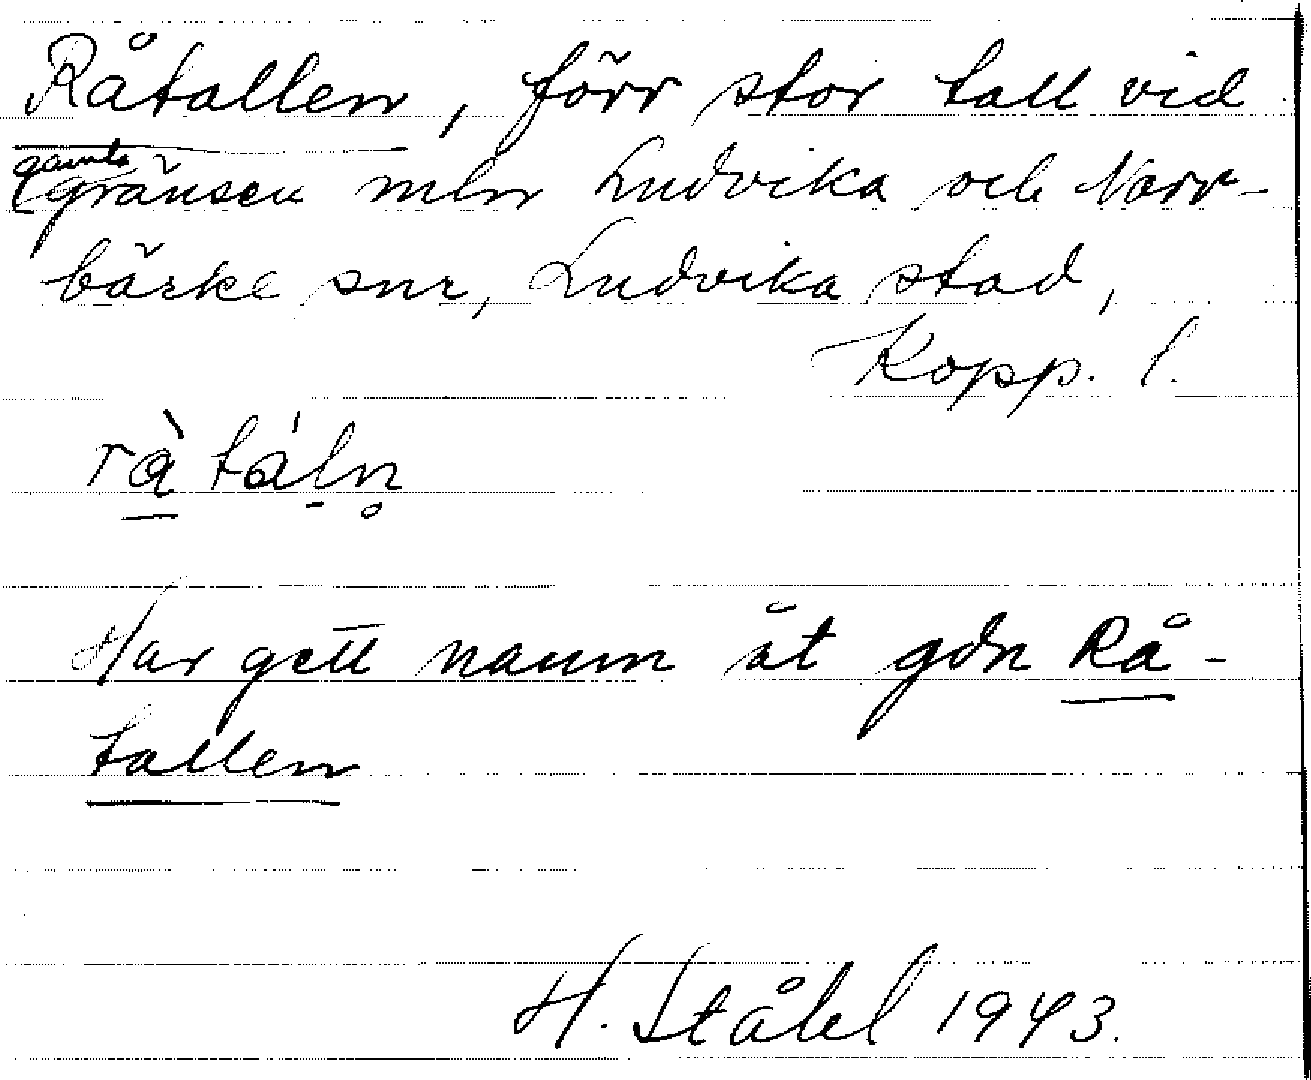 Råtallen, förr stor tall vid
gamla
gränsen mln Ludvika och Norr-
bärke snr, Ludvika stad,
Kopp. l.
rà táln̥
Har gett namn åt gdn Rå-
tallen
H. Ståhl 1943.